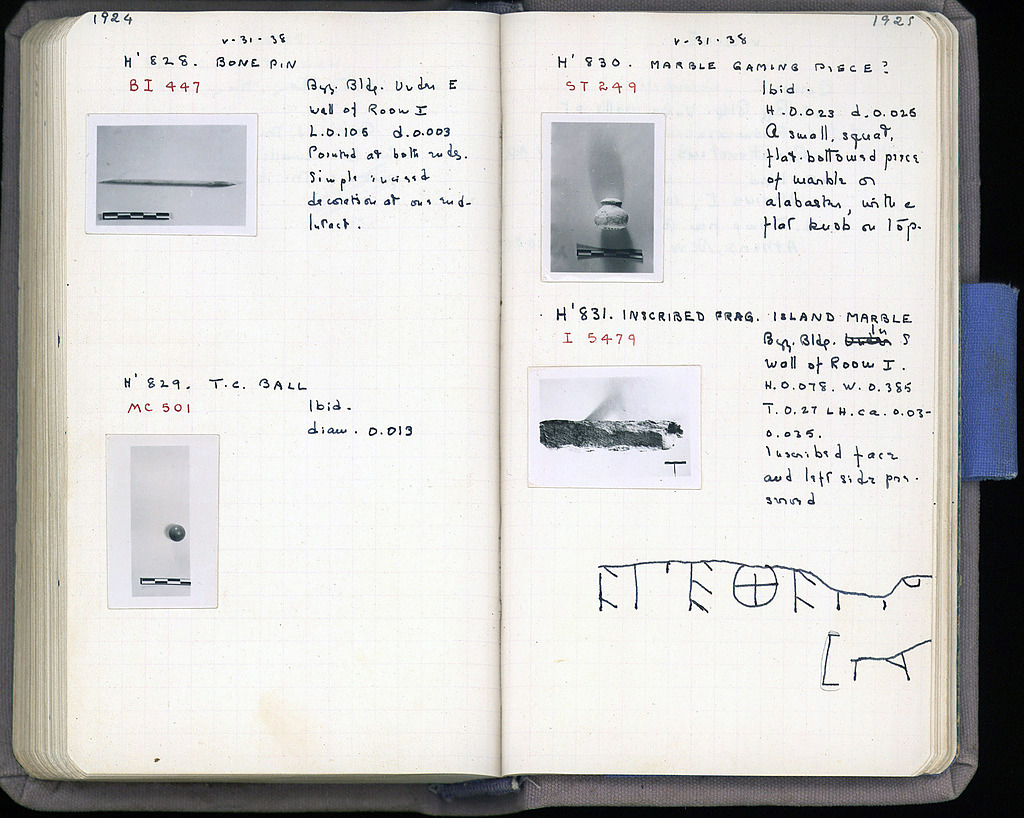 1924
V-31-38
H' 828. BONE PIN
BI 447
Byz. Bldg. Under E
wall of Room I
L. 0.106 d. 0.003
Pointed at both ends.
Simple incised
decoration at one end.
Intact.
H' 829. T.C. BALL
MC 501
Ibid.
diam. 0.013
1925
V-31-38
H' 830. MARBLE GAMING PIECE?
ST 249
Ibid.
H. 0.023 d. 0.026
A small, squat,
flat-bottomed piece
of marble or
alabaster, with a
flat knob on top.
H' 831. INSCRIBED FRAG. ISLAND MARBLE
I 5479
Byz. Bldg. in S
wall of Room I.
H. 0.078. W. 0.385
T. 0.27 LH. ca. 0.03-
0.035.
Inscribed face
and left side pre-
served